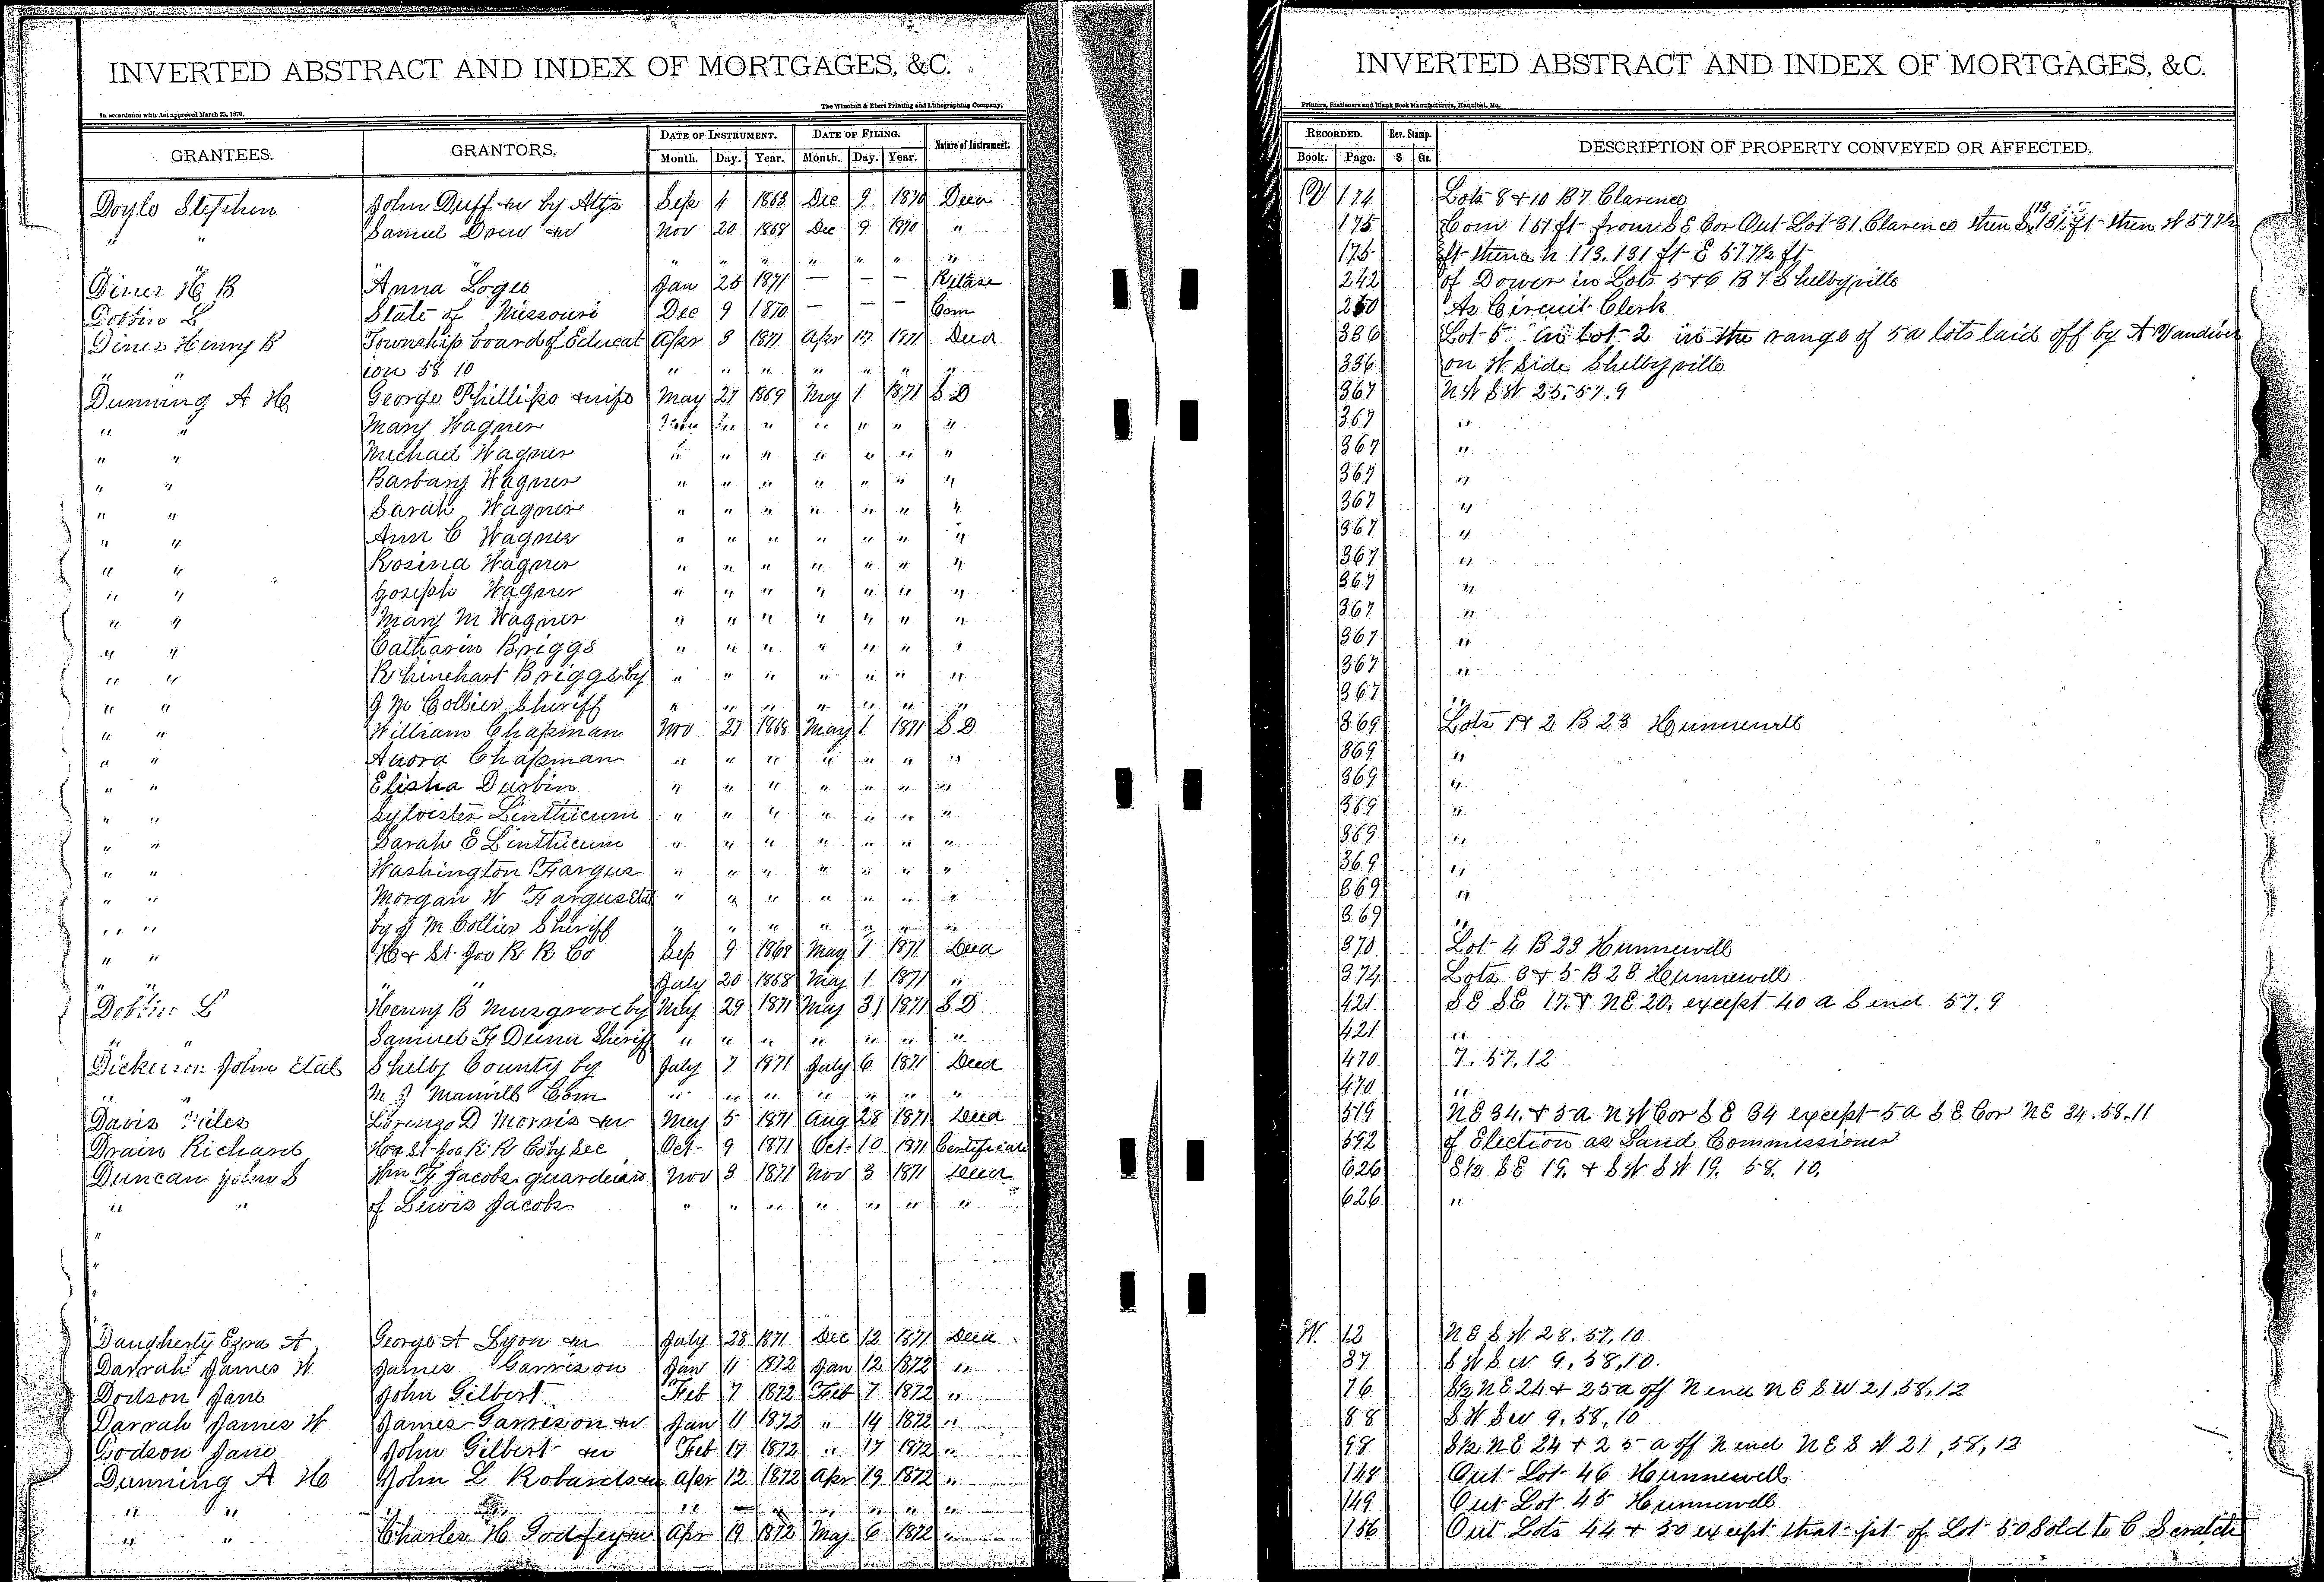 INVERTED ABSTRACT AND INDEX OF MORTGAGES, &C.
In accordance with Act approved March 25, 1870.
The Winchell & Ebert Printing and Lithographing Company,
GRANTEES. GRANTORS. DATE OF INSTRUMENT. DATE OF FILING. Nature of Instrument.
Month. Day. Year. Month. Day. Year.
Doyle Stephen John Duff &w by Atty Sep 4 1863 Dec 9 1870 Deed
" " Samuel Drew &w Nov 20 1869 Dec 9 1870 "
" " " " " " "
Dines H B Anna Loges Jan 25 1871 — — — Release
Dobbin L State of Missouri Dec 9 1870 — — — Com
Dines Henry B Township board of Educat Apr 3 1871 Apr 17 1871 Deed
" " ion 58 10 " " " " " " "
Dunning A H George Phillips &wife May 27 1869 May 1 1871 S D
" " Mary Wagner " " " " " "
" " Michael Wagner " " " " " " "
" " Barbary Wagner " " " " " " "
" " Sarah Wagner " " " " " " "
" " Ann C Wagner " " " " " " "
" " Rosina Wagner " " " " " " "
" " Joseph Wagner " " " " " " "
" " Mary M Wagner " " " " " " "
" " Catharin Briggs " " " " " " "
" " Rhinehart Briggs by " " " " " " "
" " J M Collier Sheriff " " " " " "
" " William Chapman Nov 27 1868 May 1 1871 S D
" " Aurora Chapman " " " " " " "
" " Elisha Durbin " " " " " " "
" " Sylvister Linthicum " " " " " " "
" " Sarah E Linthicum " " " " " " "
" " Washington Fargus " " " " " " "
" " Morgan W Fargus etal " " " " " " "
" " by J M Collier Sheriff " " " " " " "
" " H & St. Joe R R Co Sep 9 1868 May 1 1871 Deed
" " " " July 20 1868 May 1 1871 "
Dobbin L Henry B Musgrove by May 29 1871 May 31 1871 S D
" " Samuel F Dunn Sheriff " " " " " " "
Dickerson John etal Shelby County by July 7 1871 July 6 1871 Deed
" " M J Manvill Com " " " " " " "
Davis Files Lorenzo D Morris &w May 5 1871 Aug 28 1871 Deed
Drain Richard H & St Joe R R Co by Sec Oct 9 1871 Oct 10 1871 Certificate
Duncan John S Wm F Jacobs guardian Nov 3 1871 Nov 3 1871 Deed
" " of Lewis Jacobs " " " " " " "
Daugherty Ezra A George A Lyon &w July 28 1871 Dec 12 1871 Deed
Darrah James W James Garrison Jan 11 1872 Jan 12 1872 "
Dodson Jane John Gilbert Feb 7 1872 Feb 7 1872 "
Darrah James W James Garrison &w Jan 11 1872 " 14 1872 "
Dodson Jane John Gilbert &w Feb 17 1872 " 17 1872 "
Dunning A H John L Robards &w Apr 12 1872 Apr 19 1872 "
" " " " " " " " "
" " Charles H Godfey &w Apr 19 1872 May 6 1872 "
INVERTED ABSTRACT AND INDEX OF MORTGAGES, &C.
Printers, Stationers and Blank Book Manufacturers, Hannibal, Mo.
RECORDED. Rev. Stamp. DESCRIPTION OF PROPERTY CONVEYED OR AFFECTED.
Book. Page. $ Cts.
174 Lots 8 & 10 B 7 Clarence
175 Com 151 ft from S E Cor Out Lot 31 Clarence then S 131 ft then W 57½
175 ft thence N 113.131 ft E 57½ ft
242 of Dower in Lots 5 & 6 B 7 Shelbyville
250 As Circuit Clerk
336 Lot 5 in Lot 2 in the range of 5 a lots laid off by A Vandiver
336 on W Side Shelbyville
367 N W S W 25.57.9
367 "
367 "
367 "
367 "
367 "
367 "
367 "
367 "
367 "
367 "
367 "
369 Lots 1 & 2 B 23 Hunnewell
369 "
369 "
369 "
369 "
369 "
369 "
369 "
370 Lot 4 B 23 Hunnewell
374 Lots 3 & 5 B 23 Hunnewell
421 S E S E 17. & N E 20. except 40 a S end 57.9
421 "
470 7.57.12
470 "
519 N E 34. & 5 a N W Cor S E 34 except 5 a S E Cor N E 34.58.11
592 of Election as Land Commissioner
626 E½ S E 19. & S W S W 19. 58.10.
626 "
W. 12 N E S W 28.57.10
37 S W S W 9,58,10.
76 S½ N E 24 & 25 a off N end N E S W 21.58.12
88 S W S W 9.58,10
98 S½ N E 24 & 25 a off N end N E S W 21,58,12
148 Out Lot 46 Hunnewell
149 Out Lot 45 Hunnewell
156 Out Lots 44 & 50 except that pt of Lot 50 Sold to C Scratch